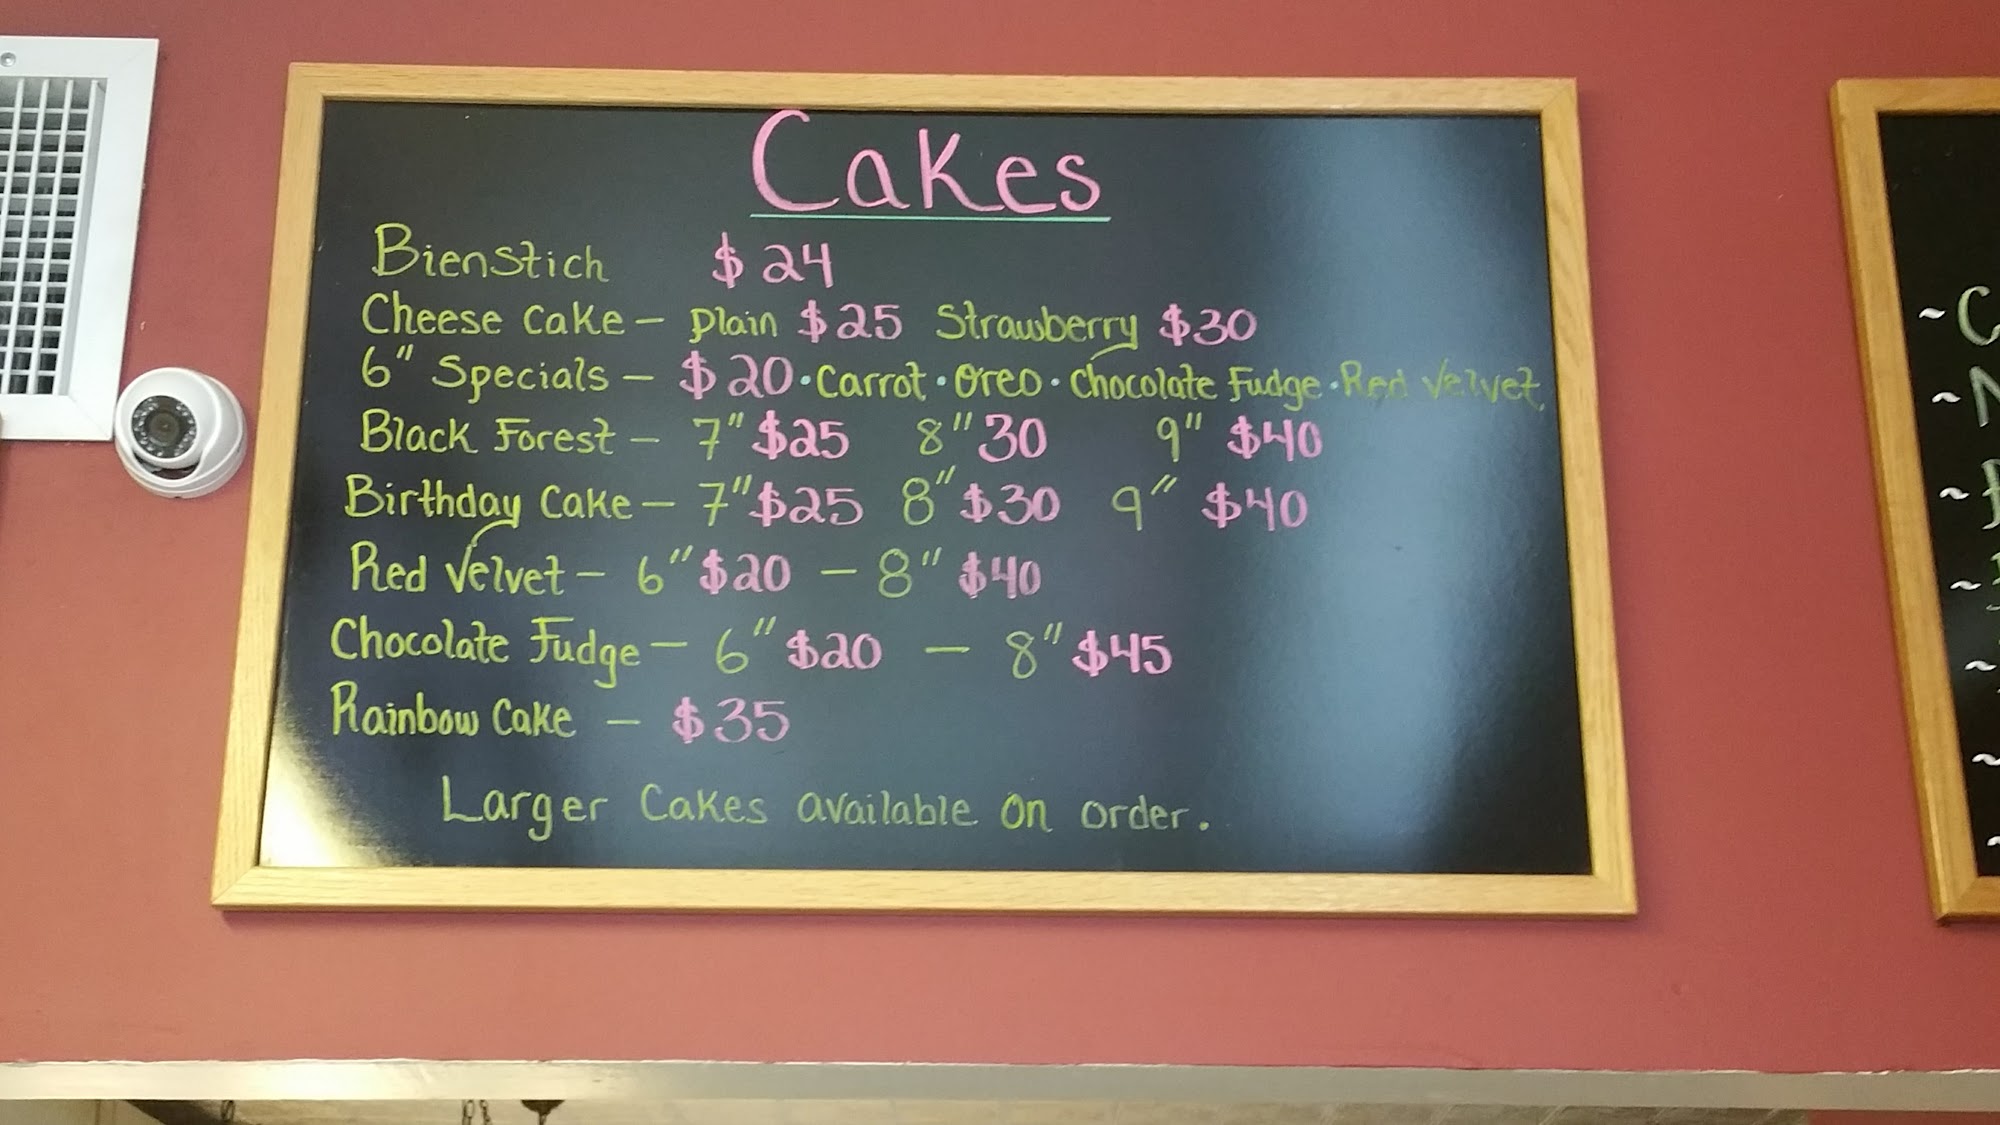 Cakes
Bienstich $24
Cheese Cake - plain $25 Strawberry $30
6" Specials - $20 · Carrot · Oreo · Chocolate Fudge · Red Velvet
Black Forest - 7" $25 8" 30 9" $40
Birthday Cake - 7" $25 8" $30 9" $40
Red Velvet - 6" $20 - 8" $40
Chocolate Fudge - 6" $20 - 8" $45
Rainbow Cake - $35
Larger Cakes available on order.